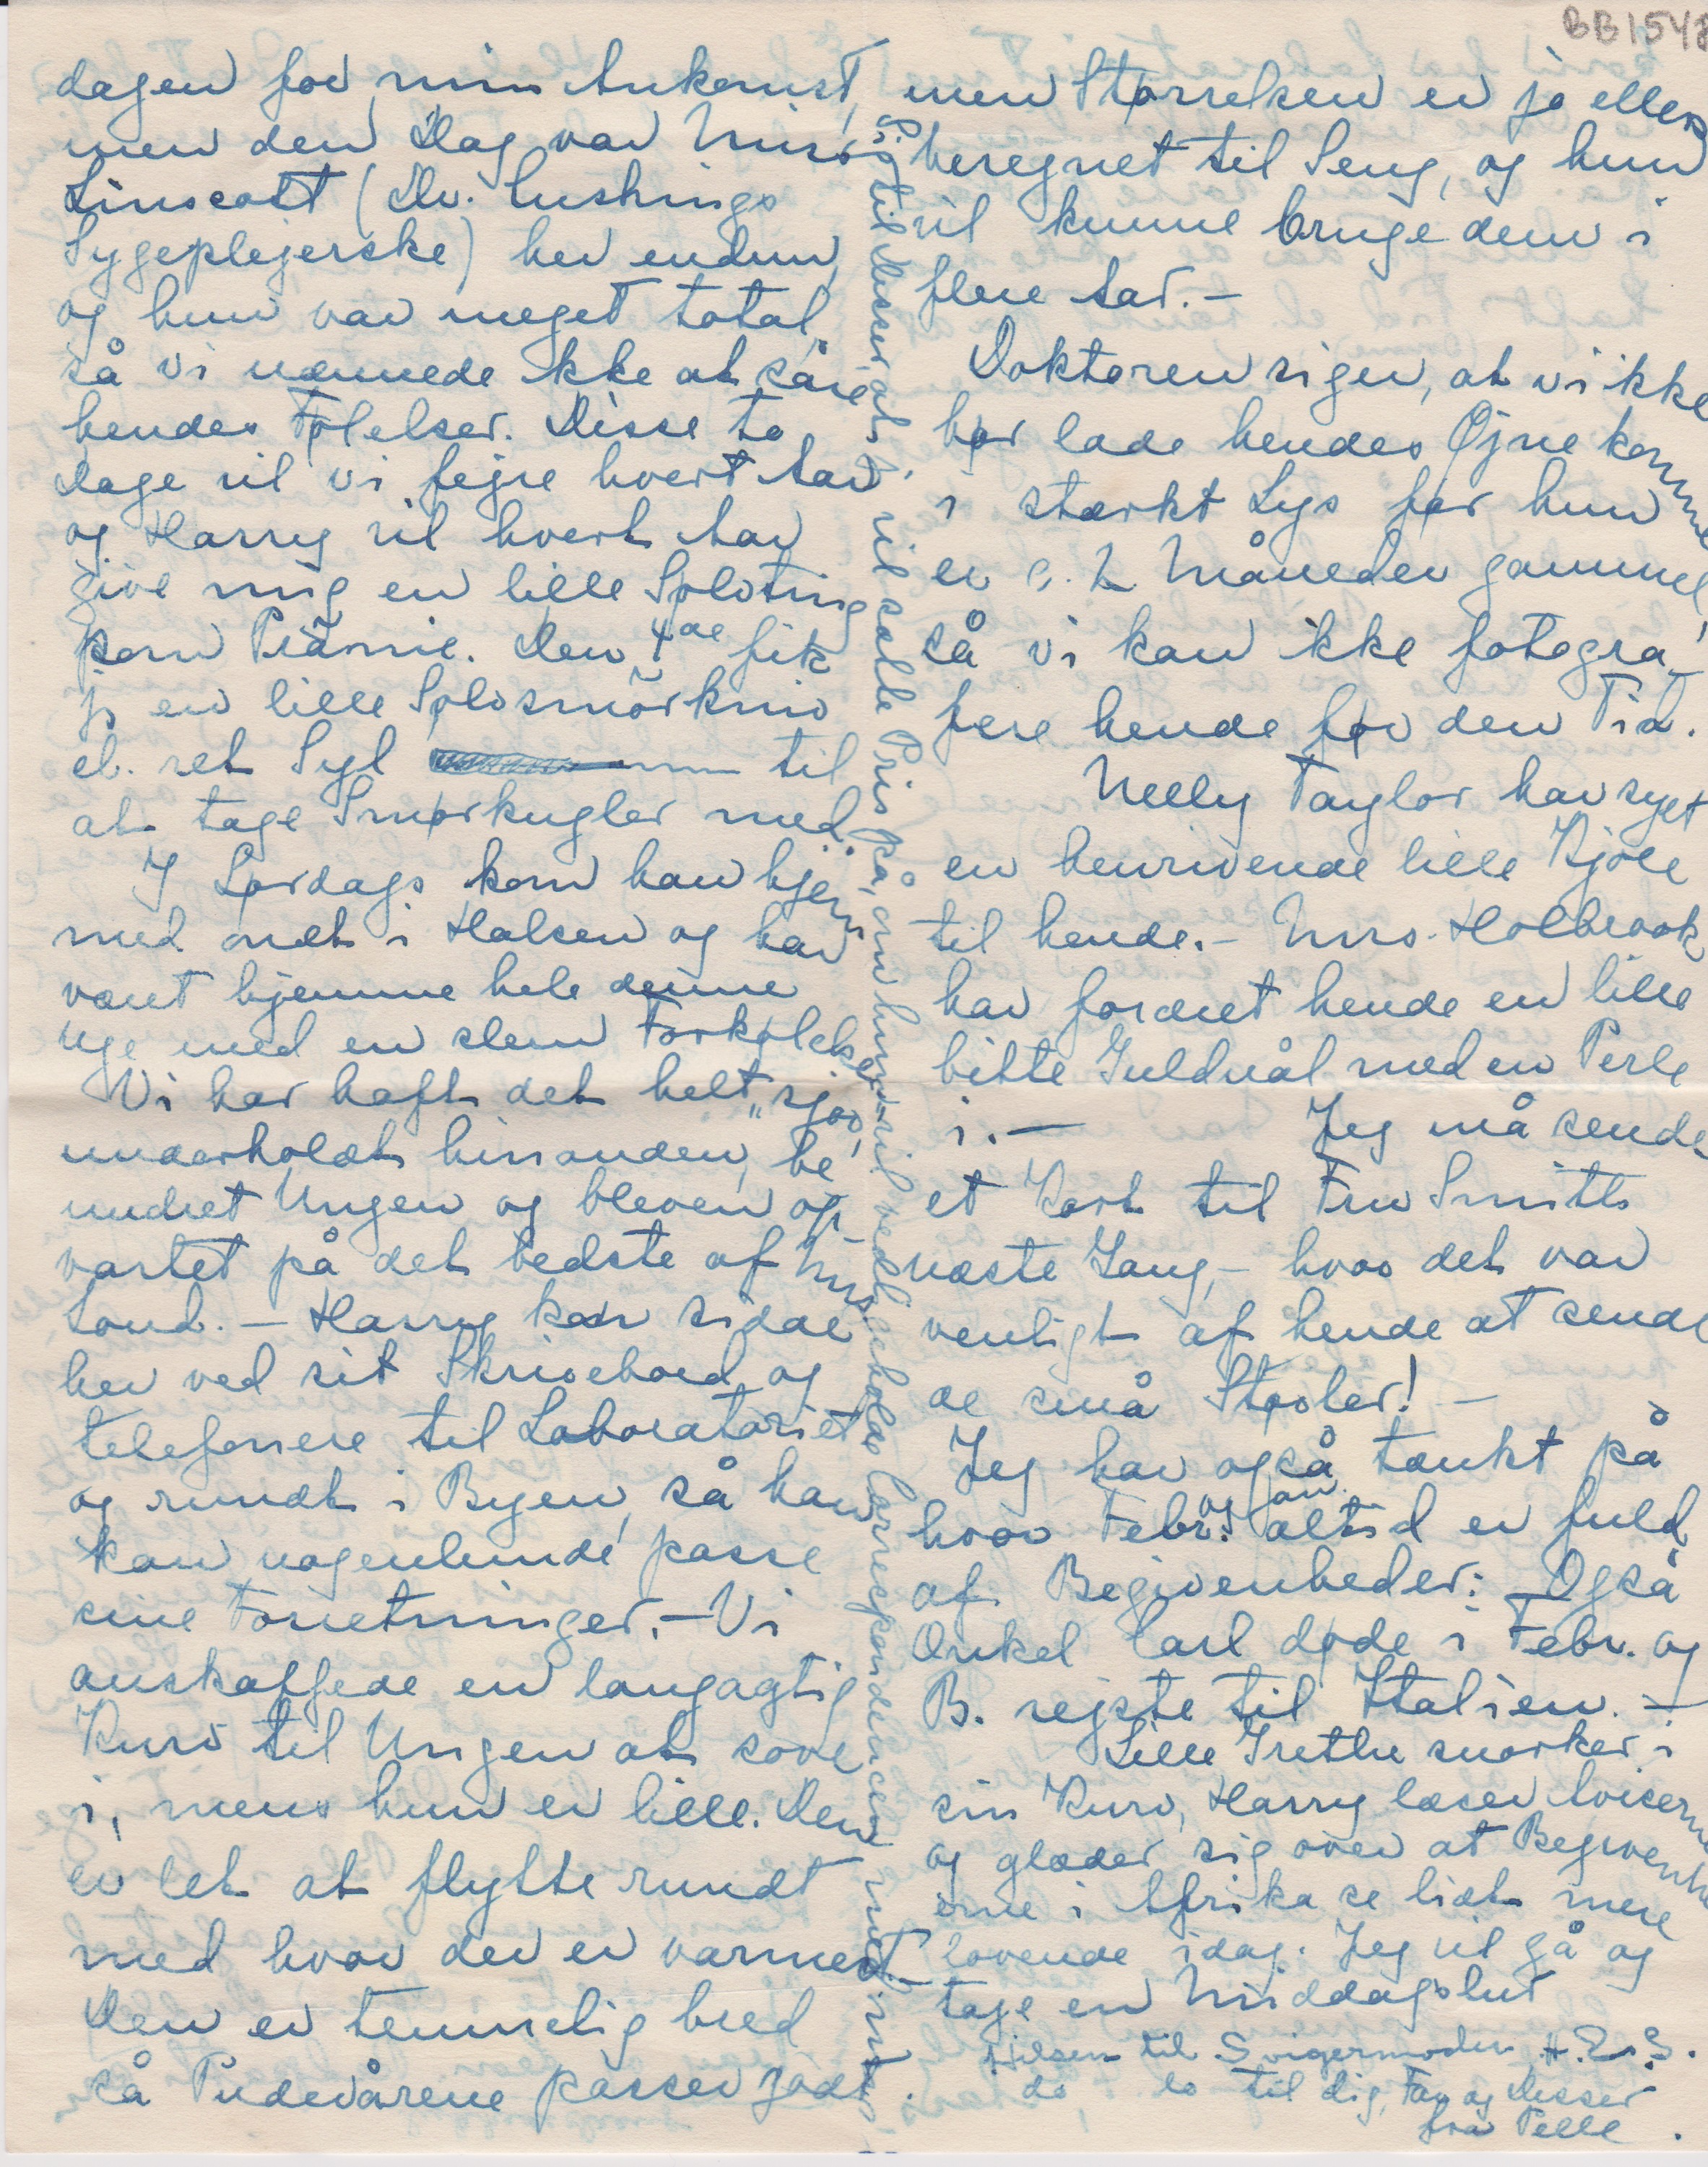 BB1548
dagen for min Ankomst,
men den Dag var Miss
Linscott (Dr. Cushings
Sygeplejerske) her endnu,
og hun var meget total,
så vi nænnede ikke at såre
hendes Følelser. Disse to
Dage vil vi fejre hvert Aar
og Harry vil hvert Aar
give mig en lille Sølvting
som Præmie. Den 4de fik
jeg en lille Sølvsmörkniv
el. ret Syl til
at tage Smørkugler med.
I Lørdags kom han hjem
med ondt i Halsen og har
været hjemme hele denne
Uge med en slem Forkølelse.
Vi har haft det helt „sjov,
underholdt hinanden, be-
undret Ungen og bleven op-
vartet på det bedste af Mrs.
Lond. – Harry kan sidde
her ved sit Skrivebord og
telefonere til Laboratoriet
og rundt i Byen, så han
kan nogenlunde passe
sine Forretninger. – Vi
anskaffede en langagtig
Kurv til Ungen at sove
i, mens hun er lille. Den
er let at flytte rundt
med hvor der er varmest. –
Den er temmelig bred
så Pudevårene passer godt.
Sig til Disser at vi vil sætte Pris på, om hun vil vedligeholde Correspondencen med
men Størrelsen er jo ellers
beregnet til Seng, og hun
vil kunne bruge dem i
flere Aar. –
Doktoren siger, at vi ikke
bør lade hendes Øjne komme
i stærkt Lys før hun
er c. 2 Måneder gammel,
så vi kan ikke fotogra-
fere hende før den Tid.
Nelly Taylor har syet
en henrivende lille Kjole
til hende. – Mrs. Holbrook
har foræret hende en lille
bitte Guldnål med en Perle
i. – Jeg må sende
et Kort til Fru Smith
næste Gang, – hvor det var
venligt af hende at sende
de små Støvler! –
Jeg har også tænkt på
hvor Febr. og Jan. altid er fuld
af Begivenheder: – Også
Onkel Carl døde i Febr. og
B. rejste til Italien. –
Lille Grethe snorker i
sin Kurv, Harry læser Aviserne
og glæder sig over at Begivenhe
erne i Afrika se lidt mere
lovende idag. Jeg vil gå og
tage en Middagslur
Hilsen til Svigermoder H. E. S.
do do til dig, Far og Disser
fra Pelle.